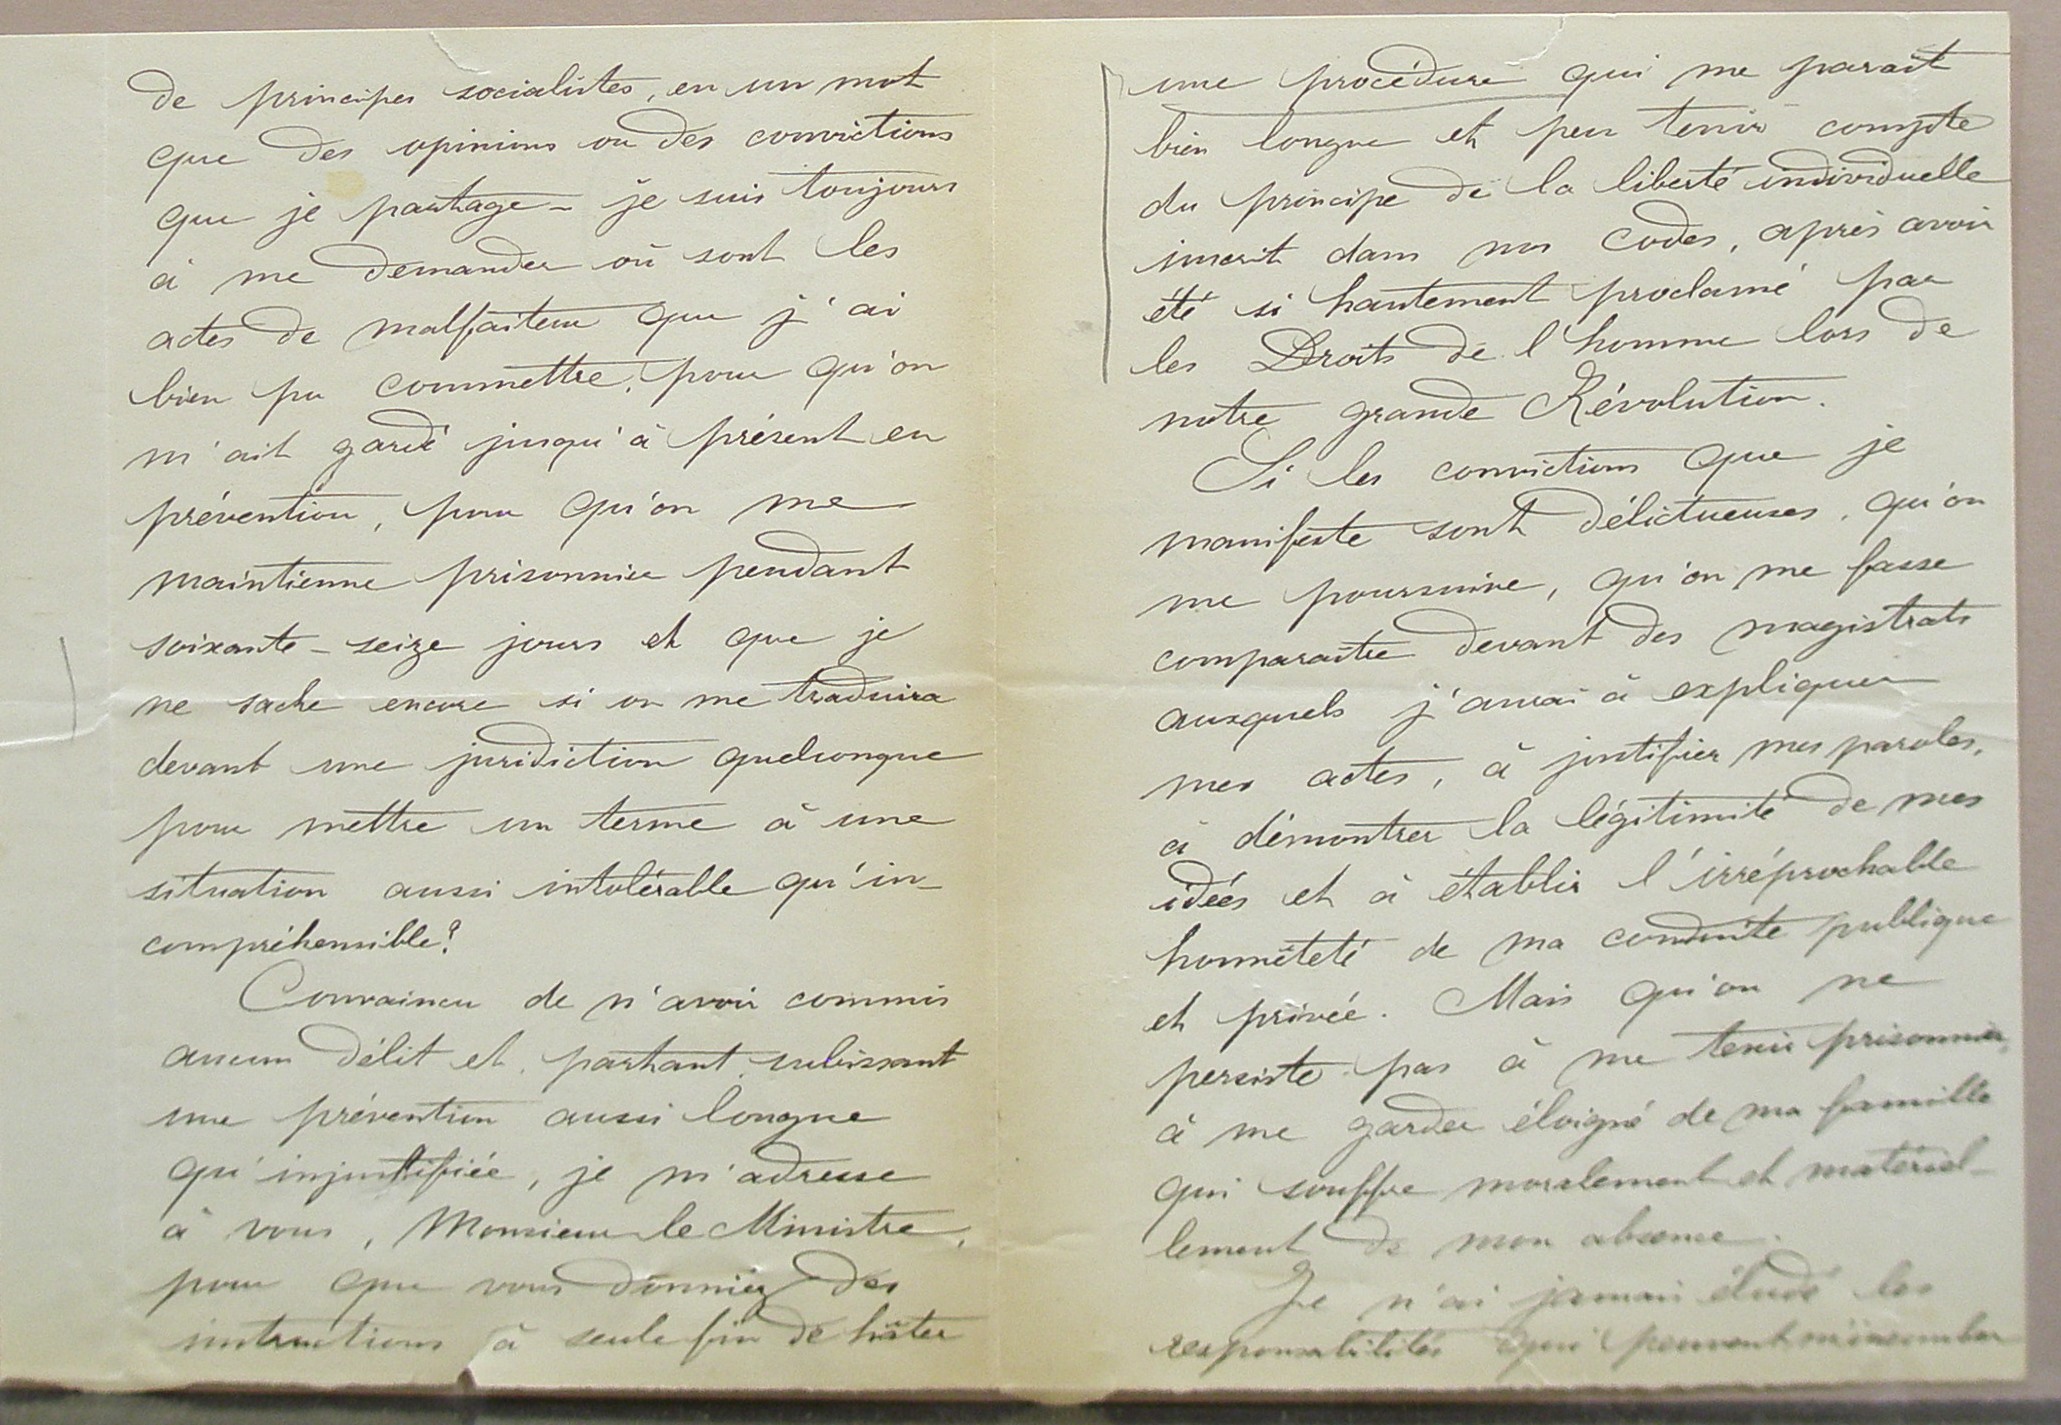 de principes socialistes, en un mot
que des opinions ou des convictions
que je partage — je suis toujours
à me demander où sont les
actes de malfaiteur que j'ai
bien pu commettre, pour qu'on
m'ait gardé jusqu'à présent en
prévention, pour qu'on me
maintienne prisonnier pendant
soixante-seize jours et que je
ne sache encore si on me traduira
devant une juridiction quelconque
pour mettre un terme à une
situation aussi intolérable qu'in-
compréhensible?
Convaincu de n'avoir commis
aucun délit et, partant, subissant
une prévention aussi longue
qu'injustifiée, je m'adresse
à vous, Monsieur le Ministre,
pour que vous donniez des
instructions à seule fin de hâter
une procédure qui me parait
bien longue et peu tenir compte
du principe de la liberté individuelle
inscrit dans nos codes, après avoir
été si hautement proclamé par
les Droits de l'homme lors de
notre grande Révolution.
Si les convictions que je
manifeste sont délictueuses, qu'on
me poursuive, qu'on me fasse
comparaitre devant des magistrats
auxquels j'aurai à expliquer
mes actes, à justifier mes paroles,
à démontrer la légitimité de mes
idées et à établir l'irréprochable
honnêteté de ma conduite publique
et privée. Mais qu'on ne
persiste pas à me tenir prisonnier,
à me garder éloigné de ma famille
qui souffre moralement et matériel-
lement de mon absence.
Je n'ai jamais éludé les
responsabilités qui peuvent m'incomber